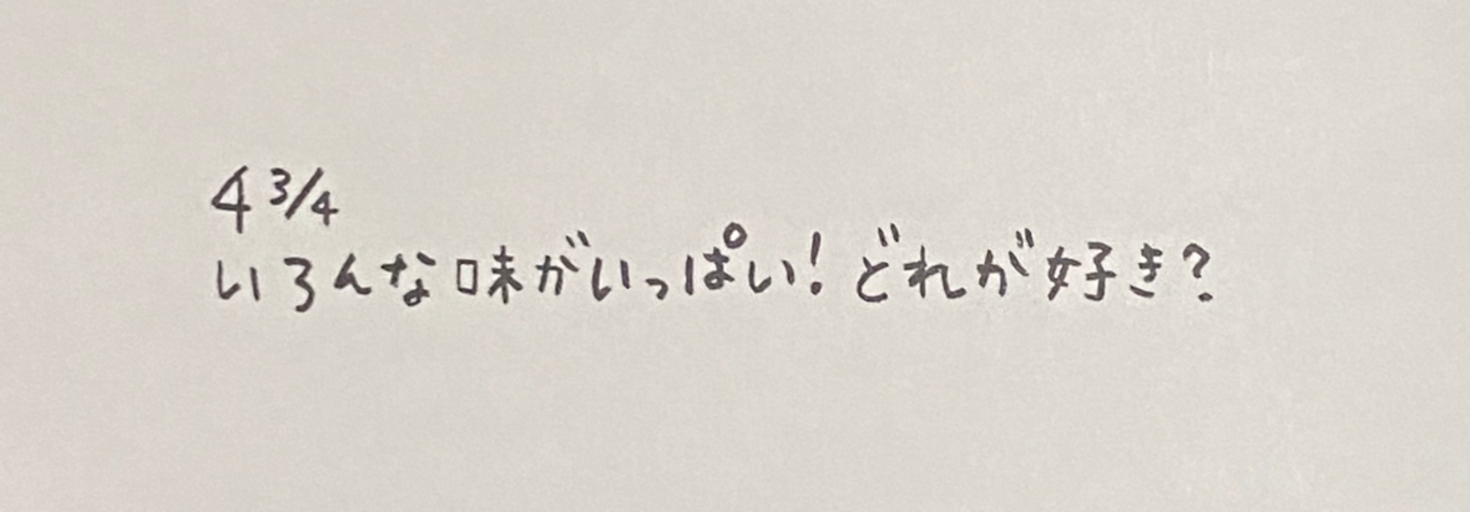 4 3/4
いろんな味がいっぱい!どれが好き?